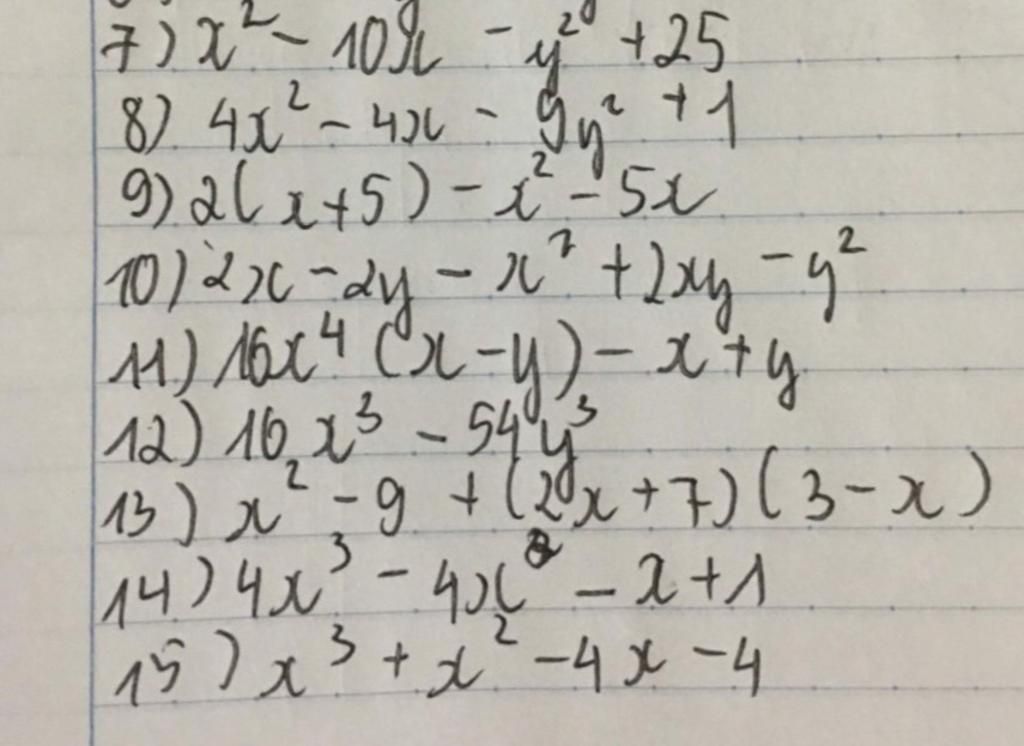 7) x² - 10x - y² + 25
8) 4x² - 4x - 9y² + 1
9) 2(x+5) - x² - 5x
10) 2x - 2y - x² + 2xy - y²
11) 16x⁴ (x - y) - x + y
12) 16x³ - 54y³
13) x² - 9 + (2x + 7)(3 - x)
14) 4x³ - 4x² - x + 1
15) x³ + x² - 4x - 4